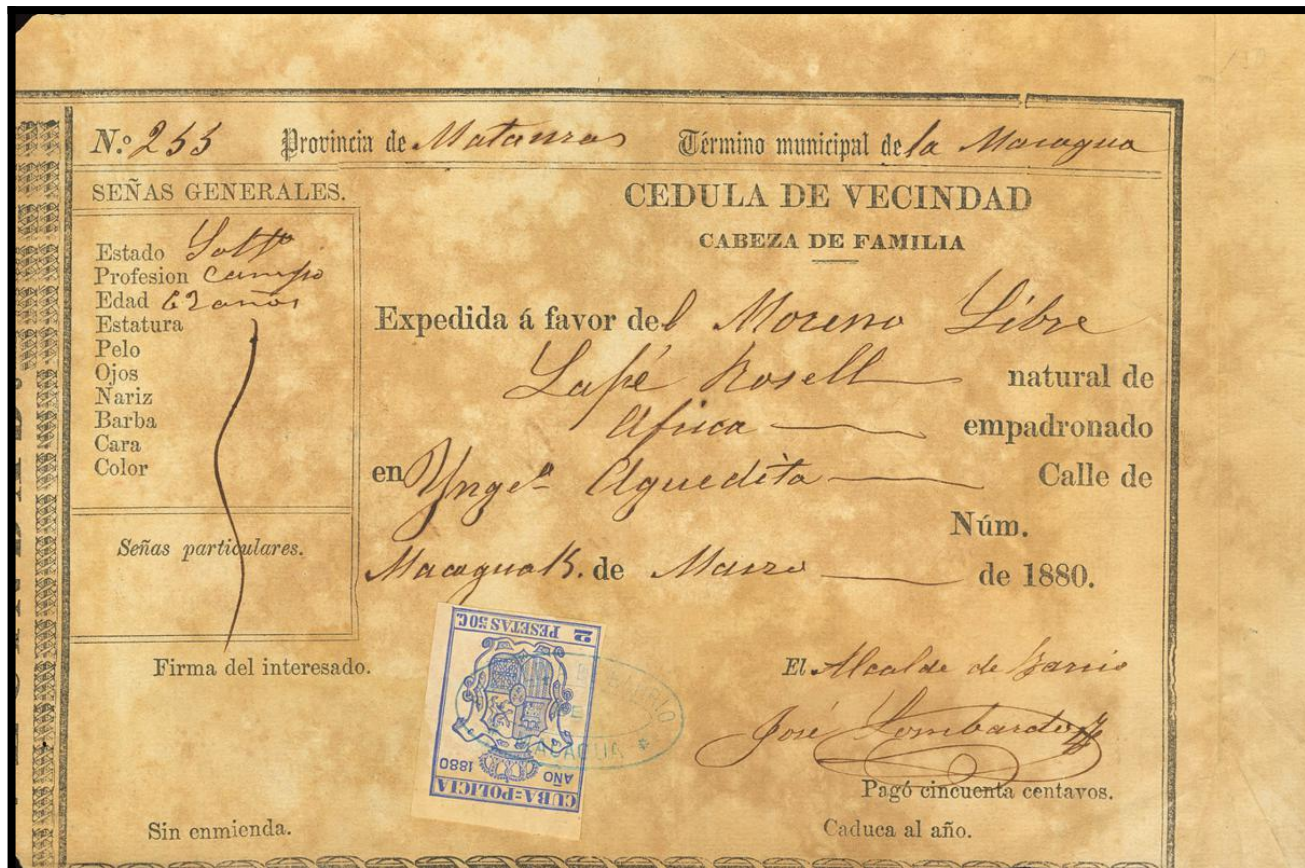 N.º 255 Provincia de Matanzas Término municipal de la Macagua
SEÑAS GENERALES.
Estado Solt.º
Profesion Campo
Edad 62 años
Estatura
Pelo
Ojos
Nariz
Barba
Cara
Color
Señas particulares.
Firma del interesado.
Sin enmienda.
CEDULA DE VECINDAD
CABEZA DE FAMILIA
Expedida á favor del Moreno Libre
Rosell natural de
Africa empadronado
en Yng.º Aguedita Calle de
Núm.
Macagua 15. de Marzo de 1880.
2 PESETAS 50 C.
AÑO 1880
CUBA=POLICIA
BARRIO
MACAGUA
El Alcalde de Barrio
José Lombardo
Pagó cincuenta centavos.
Caduca al año.